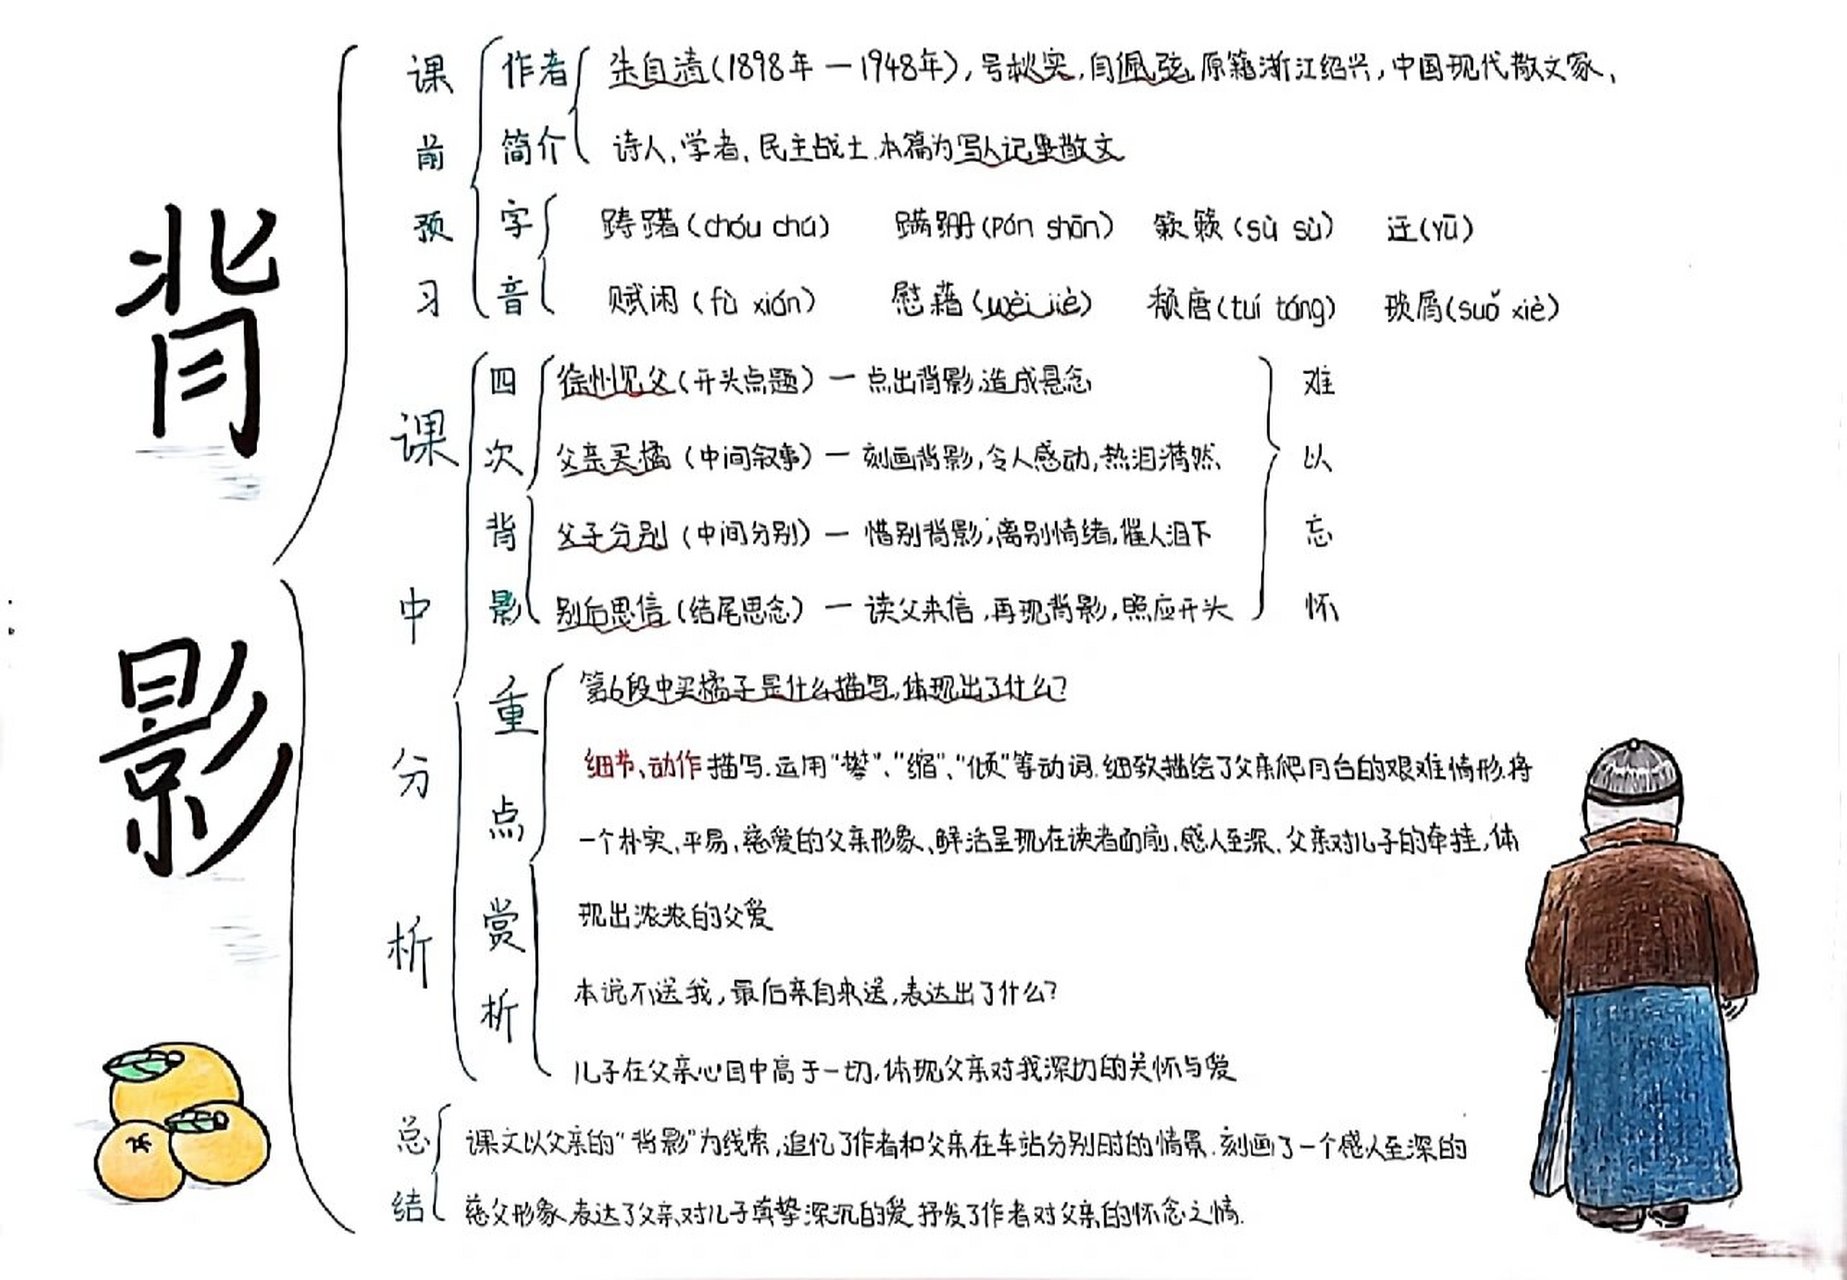 背影
课前预习
作者简介
朱自清(1898年—1948年),号秋实,自佩弦,原籍浙江绍兴,中国现代散文家、
诗人、学者、民主战士.本篇为写人记事散文
字音
踌躇(chóu chú) 蹒跚(pán shān) 簌簌(sù sù) 迂(yū)
赋闲(fù xián) 慰藉(wèi jiè) 颓唐(tuí táng) 琐屑(suǒ xiè)
课中分析
四次背影
徐州见父(开头点题)—点出背影,造成悬念
父亲买橘(中间叙事)—刻画背影,令人感动,热泪满然
父子分别(中间分别)—惜别背影,离别情绪,催人泪下
别后思信(结尾思念)—读父来信,再现背影,照应开头
难以忘怀
重点赏析
第6段中买橘子是什么描写,体现出了什么?
细节、动作描写.运用“攀”、“缩”、“倾”等动词.细致描绘了父亲爬月台的艰难情形.将
一个朴实、平易,慈爱的父亲形象、鲜活呈现在读者面前,感人至深、父亲对儿子的牵挂,体
现出浓浓的父爱
本说不送我,最后亲自来送,表达出了什么?
儿子在父亲心目中高于一切,体现父亲对我深切的关怀与爱
总结
课文以父亲的“背影”为线索,追忆了作者和父亲在车站分别时的情景.刻画了一个感人至深的
慈父形象.表达了父亲对儿子真挚深沉的爱.抒发了作者对父亲的怀念之情.